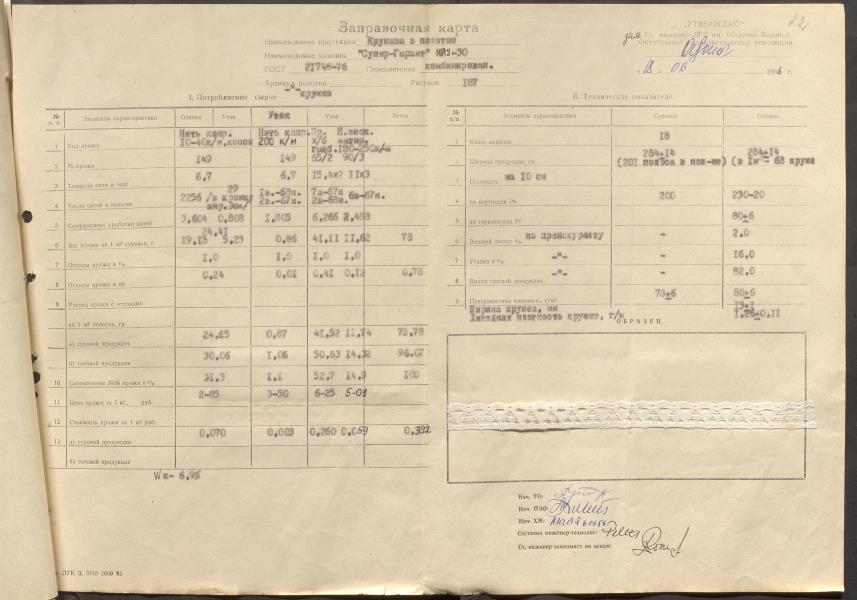 22
Заправочная карта
„УТВЕРЖДАЮ"
зам. Гл. инженер ЛГК им.
Октябрьской революции
„18" 06 1986 г.
Наименование продукции Кружева в полотне
Наименование машины "Супер-Гарант" МРS-30
ГОСТ 21748-76 Переплетение комбинирован.
Артикул полотна Рисунок 187
кружев
I. Потребляемое сырье
№ п. п. Элементы характеристики Основа Уток Уток Узор Всего
1 Вид пряжи Нить капр. Нить капр. Пр. Н.виск.
200 к/м х/б матир.
2 № пряжи 149 149 65/2 90/3
3 Толщина нити в текс 6,7 6,7 15,4х2 11х3
4 Число нитей в полотне 2256 29 1в.-68н. 2в.-67н. 7в-67н 2в-68н. 6в-67н.
5 Коэффициент сработки нитей 3,604 0,808 1,805 6,266 2,488
24,41
6 Вес пряжи на 1 м² суровья, г. 19,18 5,23 0,86 41,11 11,62 78
7 Отходы пряжи в % 1,0 1,0 1,0 1,0
8 Отходы пряжи в гр. 0,24 0,01 0,41 0,12 0,78
9 Расход пряжи с отходами
на 1 м² полотна, гр.
а) суровой продукции 24,65 0,87 41,52 11,74 78,78
б) готовой продукции 30,06 1,06 50,63 14,32 96,07
10 Соотношение №№ пряжи в % 31,3 1,1 52,7 14,9 100
11 Цена пряжи за 1 кг., руб. 2-85 3-50 6-25 5-01
12 Стоимость пряжи за 1 м² руб.
13 а) суровой продукции 0,070 0,003 0,260 0,059 0,392
б) готовой продукции
Wк- 6,9%
ЛГК З. 3160 2000 85
II. Технические показатели
№ п/п Элементы характеристики Суровое Готовое
1 Класс машины 18
2 Ширина продукции, см 284+14 284+14
(201 полоса в пол-не) (в 1м² = 68 круже
3 Плотность на 10 см
4 по вертикали Рв 200 230-20
5 по горизонтали Рг 80±6
6 Весовой допуск % по прейскуранту - 2,0
7 Усадка в % -"- - 16,0
8 Выход готовой продукции -"- - 82,0
9 Поверхностная плотность, г/м² 78±6 80±6
Ширина кружев, мм 13±1
Линейная плотность кружев, г/м 1,26±0,11
ОБРАЗЕЦ
Нач. ТО:
Нач. ПЭО
Нач. ХМ:
Составил инженер-технолог:
Ст. инженер-экономист по ценам: